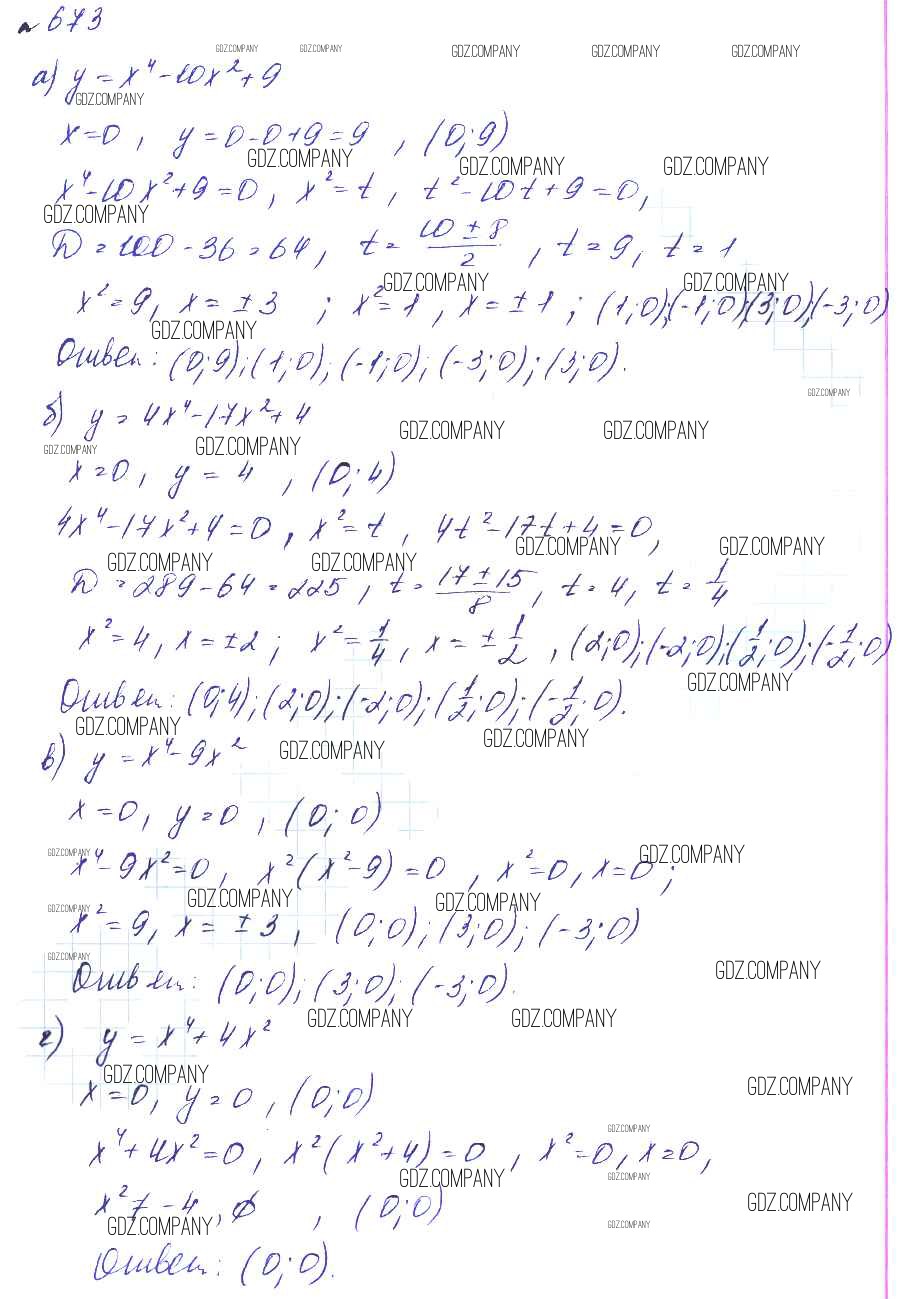 № 673
GDZ.COMPANY GDZ.COMPANY GDZ.COMPANY GDZ.COMPANY GDZ.COMPANY
а) y = x⁴ - 10x² + 9
GDZ.COMPANY
x = 0, y = 0 - 0 + 9 = 9, (0; 9)
GDZ.COMPANY GDZ.COMPANY GDZ.COMPANY
x⁴ - 10x² + 9 = 0, x² = t, t² - 10t + 9 = 0,
GDZ.COMPANY
D = 100 - 36 = 64, t = (10 ± 8)/2, t = 9, t = 1
GDZ.COMPANY GDZ.COMPANY
x² = 9, x = ± 3 ; x² = 1, x = ± 1 ; (1; 0); (-1; 0) (3; 0); (-3; 0)
GDZ.COMPANY
Ответ: (0; 9); (1; 0); (-1; 0); (-3; 0); (3; 0).
GDZ.COMPANY
б) y = 4x⁴ - 17x² + 4
GDZ.COMPANY GDZ.COMPANY GDZ.COMPANY GDZ.COMPANY
x = 0, y = 4, (0; 4)
4x⁴ - 17x² + 4 = 0, x² = t, 4t² - 17t + 4 = 0,
GDZ.COMPANY GDZ.COMPANY GDZ.COMPANY GDZ.COMPANY
D = 289 - 64 = 225, t = (17 ± 15)/8, t = 4, t = 1/4
x² = 4, x = ±2 ; x² = 1/4, x = ± 1/2, (2; 0); (-2; 0); (1/2; 0); (-1/2; 0)
GDZ.COMPANY
Ответ: (0; 4); (2; 0); (-2; 0); (1/2; 0); (-1/2; 0).
GDZ.COMPANY GDZ.COMPANY GDZ.COMPANY
в) y = x⁴ - 9x²
x = 0, y = 0, (0; 0)
GDZ.COMPANY GDZ.COMPANY
x⁴ - 9x² = 0, x²(x² - 9) = 0, x² = 0, x = 0 ;
GDZ.COMPANY GDZ.COMPANY GDZ.COMPANY
x² = 9, x = ± 3, (0; 0); (3; 0); (-3; 0)
GDZ.COMPANY GDZ.COMPANY
Ответ: (0; 0); (3; 0); (-3; 0).
GDZ.COMPANY GDZ.COMPANY
г) y = x⁴ + 4x²
GDZ.COMPANY GDZ.COMPANY
x = 0, y = 0, (0; 0)
GDZ.COMPANY
x⁴ + 4x² = 0, x²(x² + 4) = 0, x² = 0, x = 0,
GDZ.COMPANY GDZ.COMPANY
x² ≠ -4, ∅, (0; 0)
GDZ.COMPANY GDZ.COMPANY GDZ.COMPANY
Ответ: (0; 0).